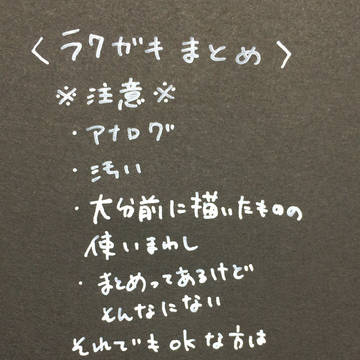 〈ラクガキまとめ〉
※注意※
・アナログ
・汚い
・大分前に描いたものの
使いまわし
・まとめってあるけど
そんなにない
それでもokな方は